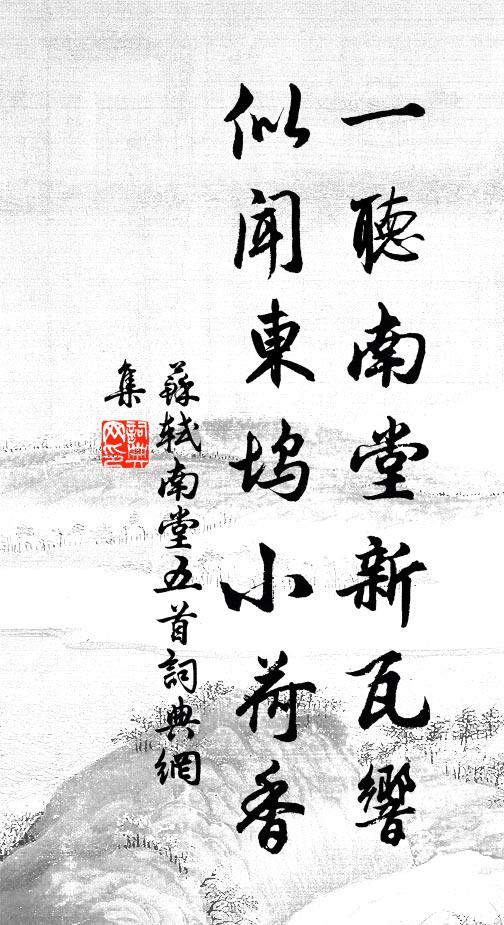 一聽南堂新瓦響
似聞東塢小荷香
蘇軾南堂五首詞典網
集